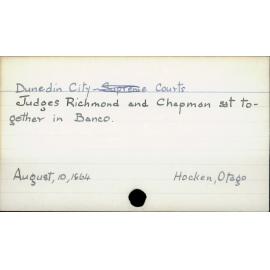 Dunedin City - Supreme Courts
Judges Richmond and Chapman sat to-
gether in Banco.
August, 10, 1864
Hocken, Otago